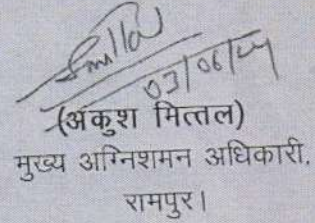 03/06/24
(अंकुश मित्तल)
मुख्य अग्निशमन अधिकारी,
रामपुर।